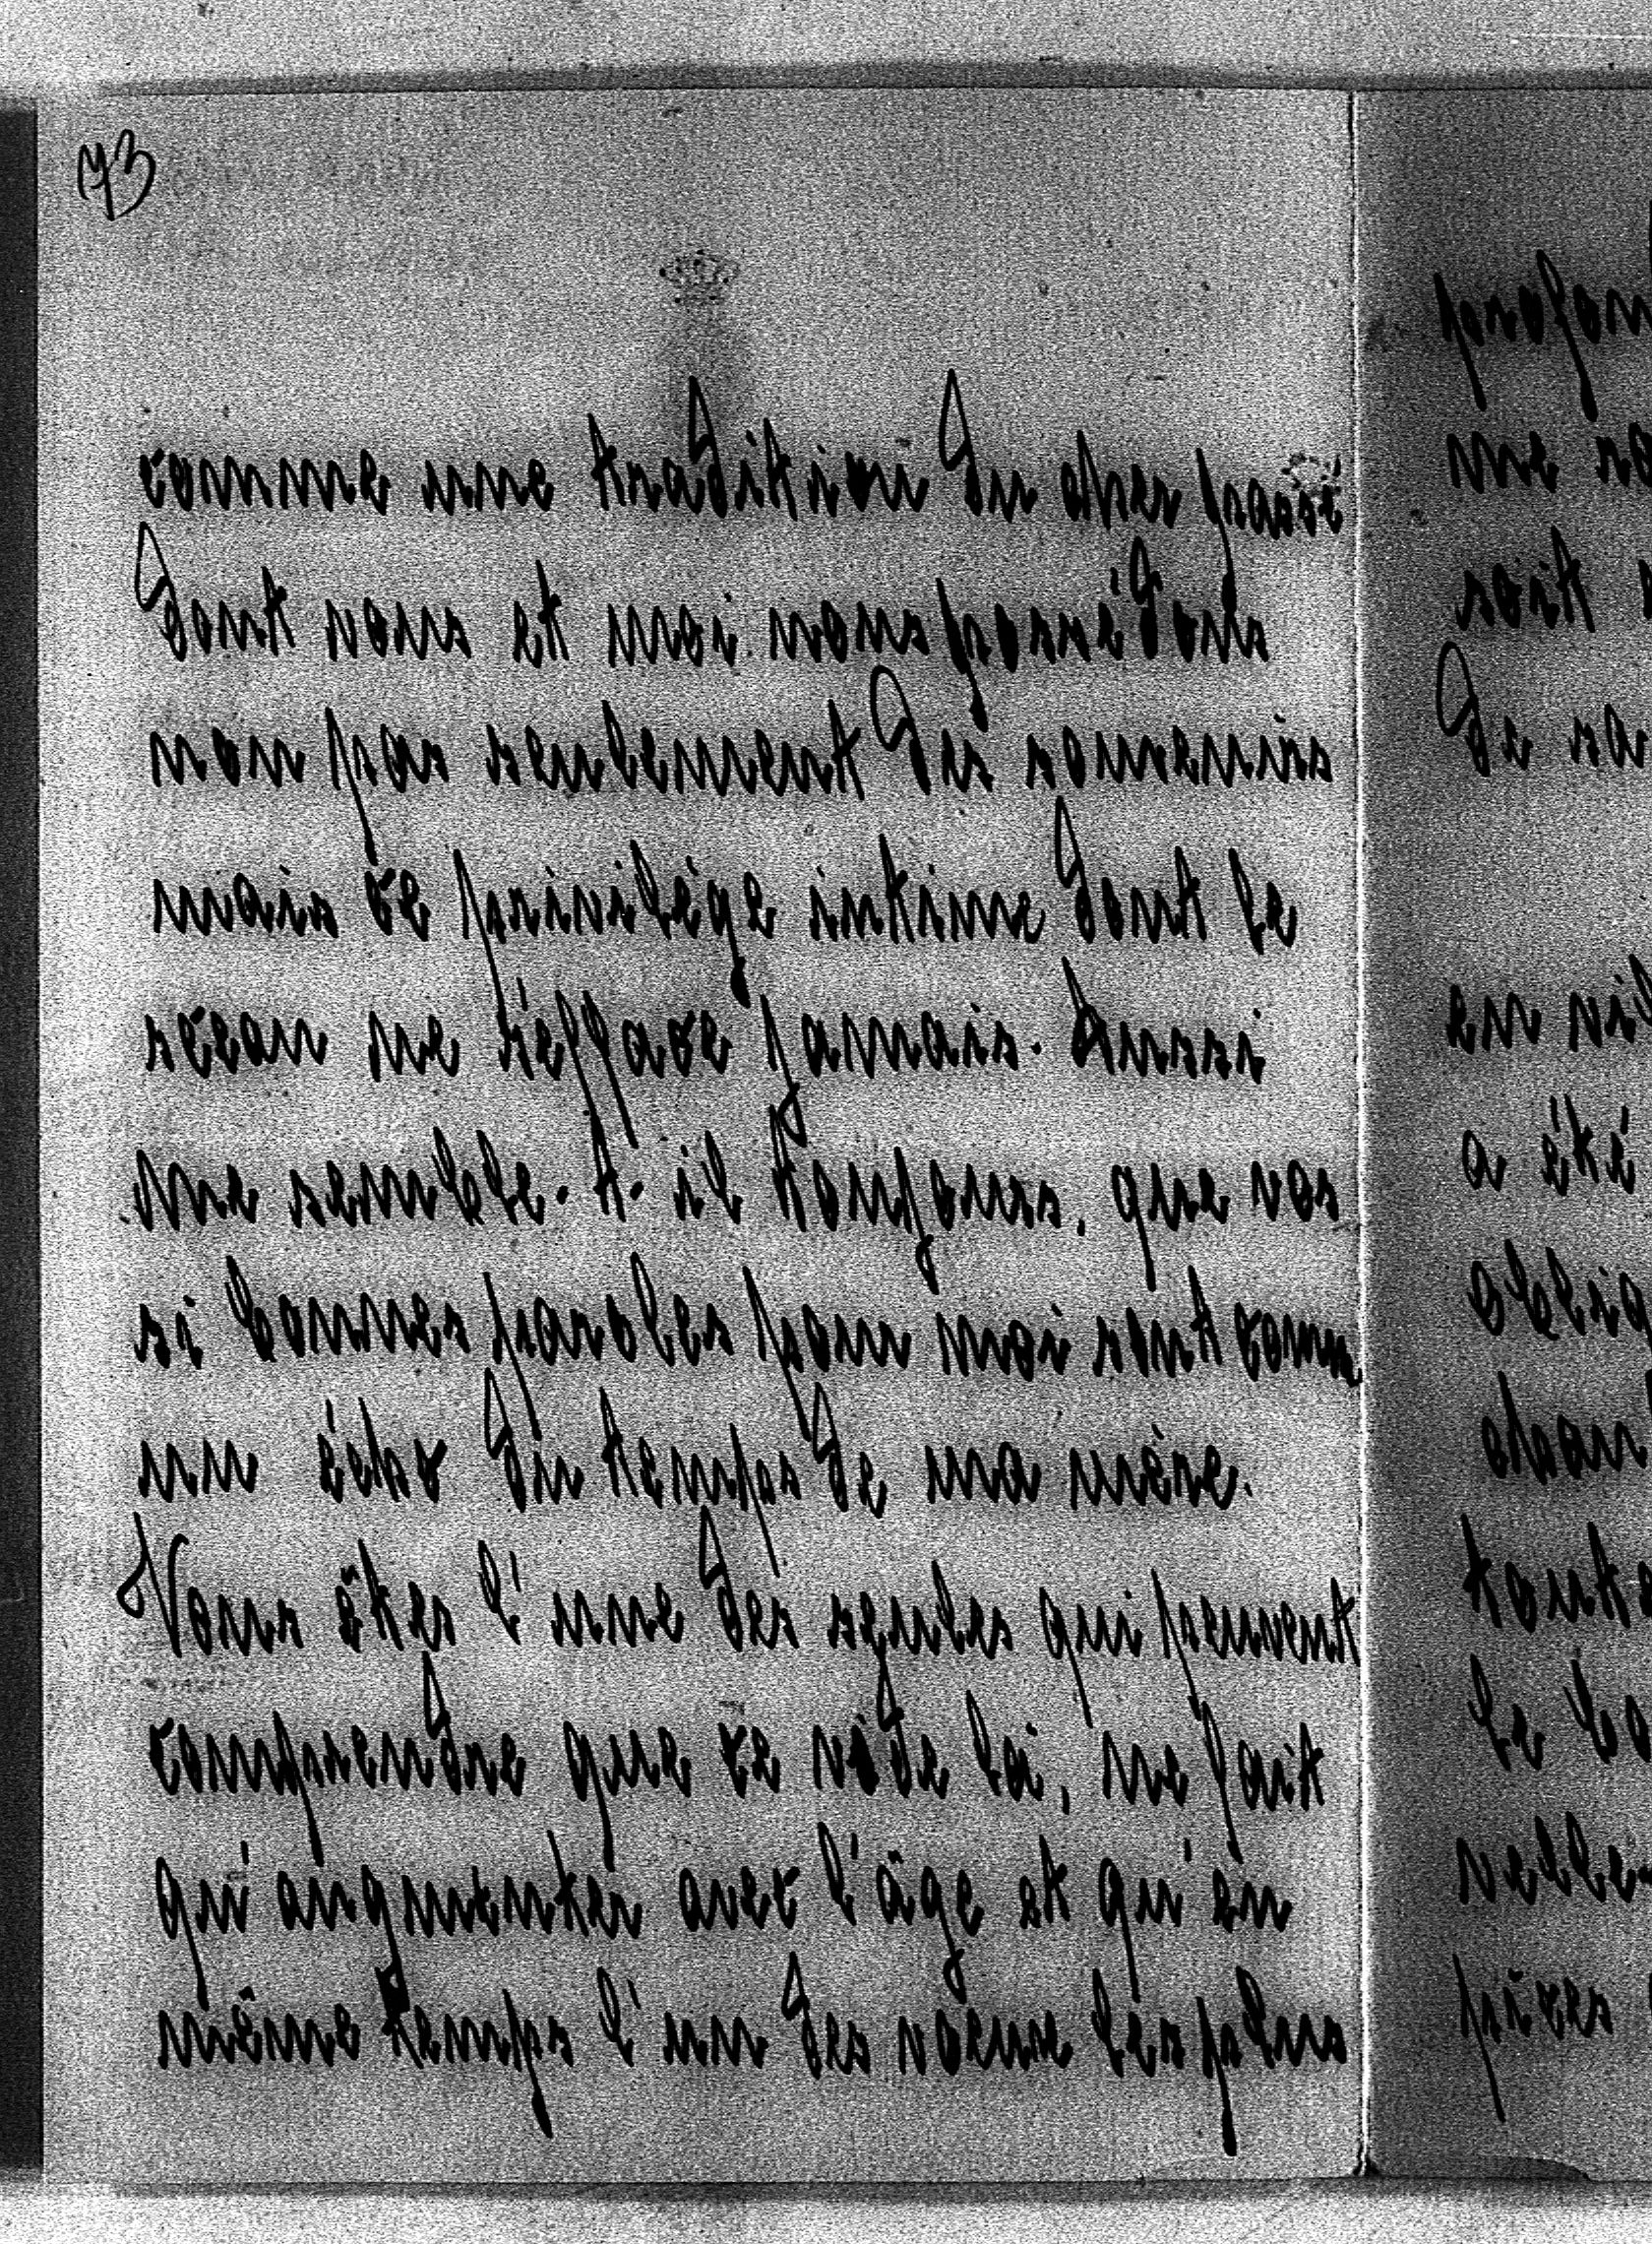 73
comme une tradition du cher passé
dont vous et moi nous possédons
non pas seulement des souvenirs
mais ce privilège intime dont le
sceau ne s'efface jamais. Aussi
me semble-t-il toujours, que vos
si bonnes paroles pour moi sont comme
un écho du temps de ma mère.
Vous êtes l'une des seules qui peuvent
comprendre que ce vide loi, ne fait
qu'augmenter avec l'âge et qu'en
même temps l'un des voeux les plus
profon
me
soit
de sa
en
a été
oblig
chaqu
toute
le
pièces